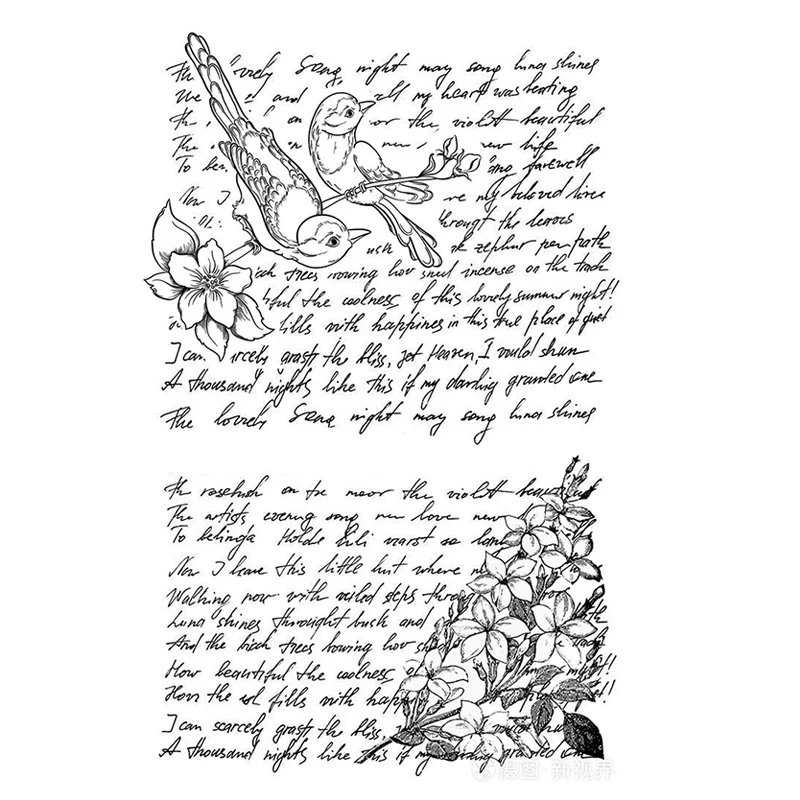 The lovely Song night may song luna shines
We and all my heart was beating
Th. on or the violett beautiful
The new life
To be and farewell
Now I re my beloved lives
through the leaves
ush zephyr per path
ich trees rowing how incense on the track
tiful the coolness of this lovely summer night!
fills with happines in this true place of quiet
I can arcely grasp the bliss, yet Heaven, I would shun
A thousand nights like this if my darling granted one
The lovely Song night may song luna shines
the rosebush on the moor the violett beautiful
The artists evening song new love new
To belinda Holde Lili warst so lan
Now I leave this little hut where m
Walking now with veiled steps throug
Luna shines throught bush and
And the birch trees bowing how s
How beautiful the coolness of
How the fills with happ
I can scarcely grasp the bliss,
A thousand nights like this if my darling granted one
摄图·新视界